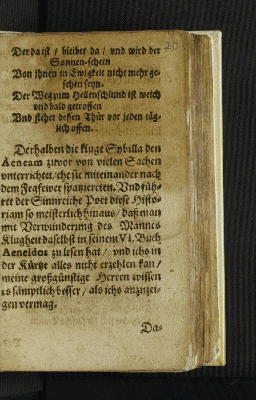 20
Der da ist / bleibet da / vnd wird der
Sonnen-schein
Von ihnen in Ewigkeit nicht mehr ge-
sehen seyn.
Der Weg zum Hellenschlund ist weich
vnd bald getroffen
Vnd stehet dessen Thür vor jeden täg-
lich offen.
Derhalben die kluge Sybilla den
Aeneam zuvor von vielen Sachen
vnterrichtet / ehe sie miteinander nach
dem Fegfewer spatziereten. Vnd füh-
ret der Sinnreiche Poet diese Histo-
riam so meisterlich hinaus / daß man
mit Verwunderung des Mannes
Klugheit daselbst in seinem VI. Buch
Aeneidos zu lesen hat / vnd ichs in
der Kürtze alles nicht erzehlen kan /
meine großgünstige Herren wissen
es sämptlich besser / als ichs anzuzei-
gen vermag.
Da-